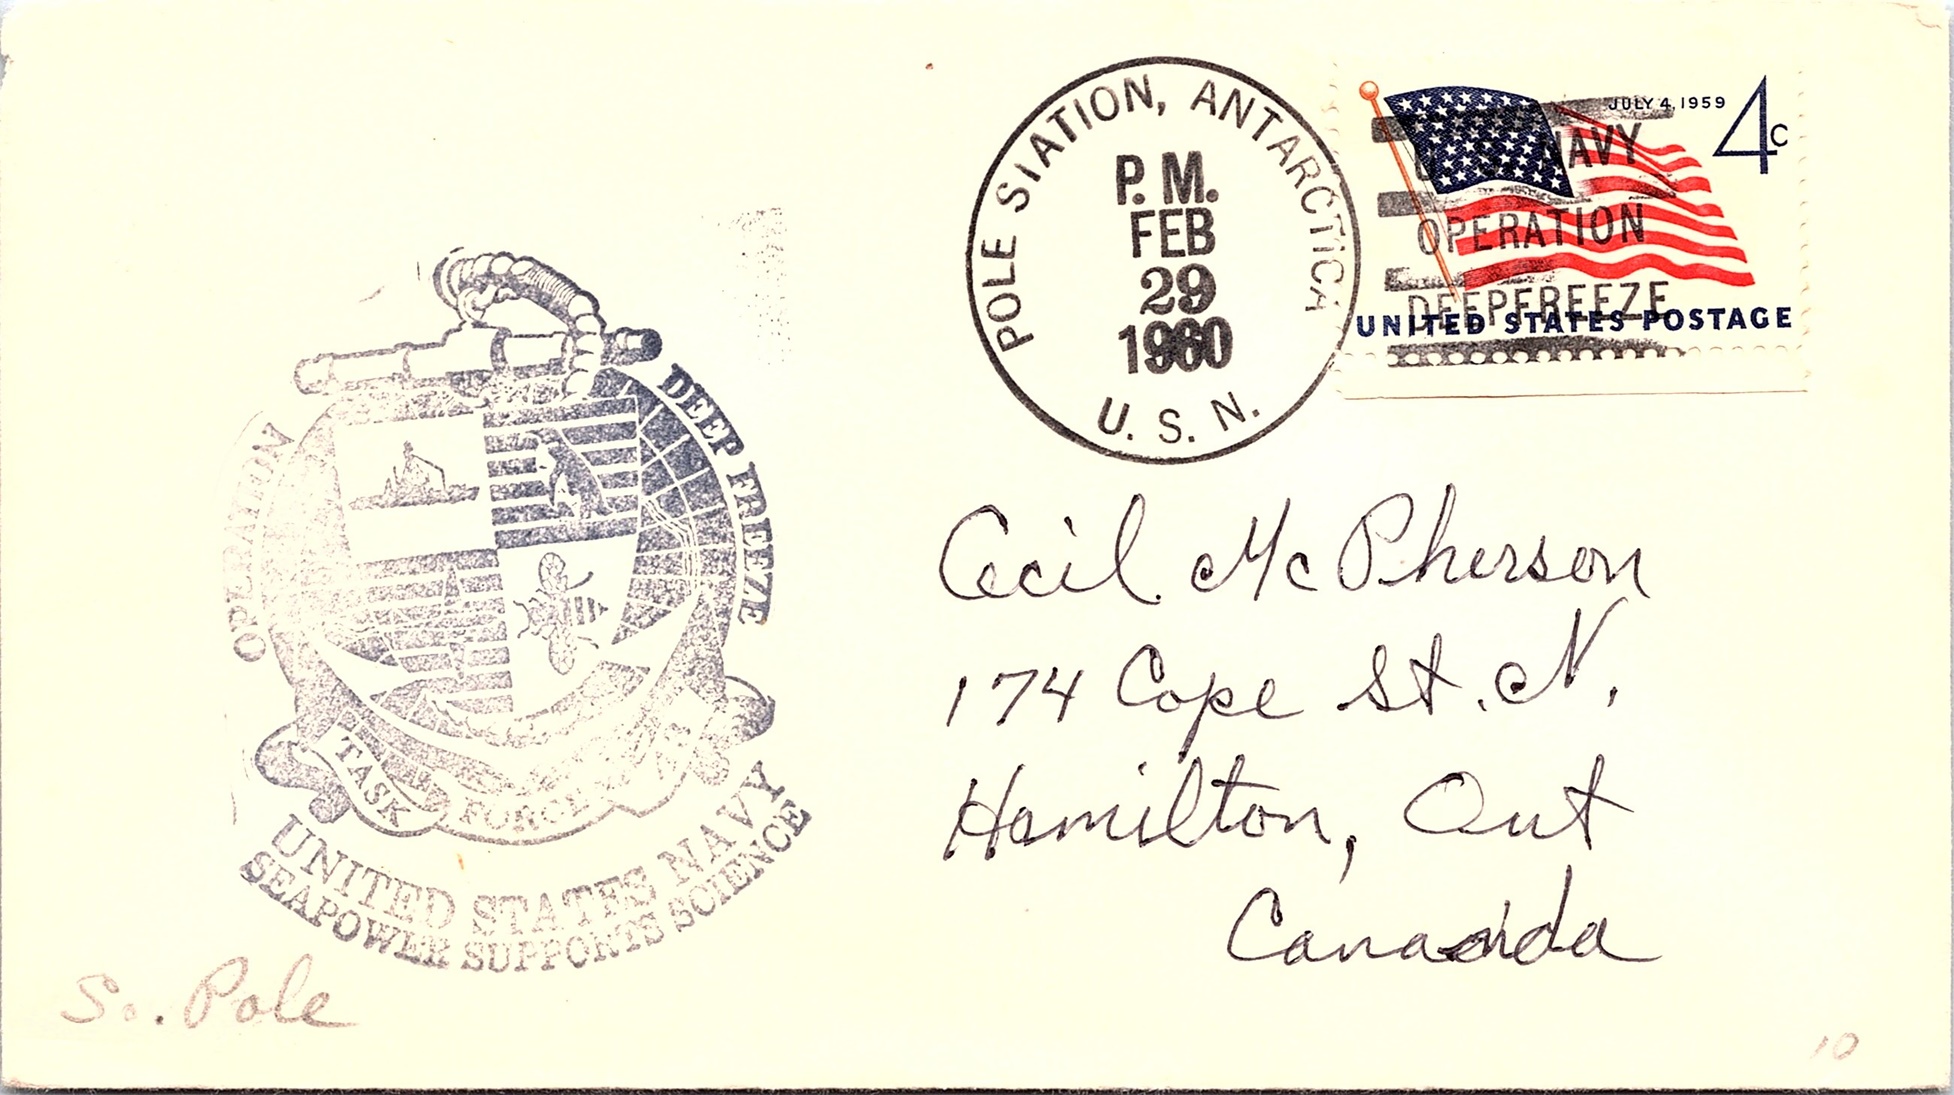 POLE STATION, ANTARCTICA
P. M.
FEB
29
1960
U. S. N.
JULY 4, 1959
4c
U. S. NAVY
OPERATION
DEEPFREEZE
UNITED STATES POSTAGE
OPERATION
DEEP FREEZE
TASK FORCE
UNITED STATES NAVY
SEAPOWER SUPPORTS SCIENCE
Cecil McPherson
174 Cope St. N.
Hamilton, Ont
Canada
So. Pole
10